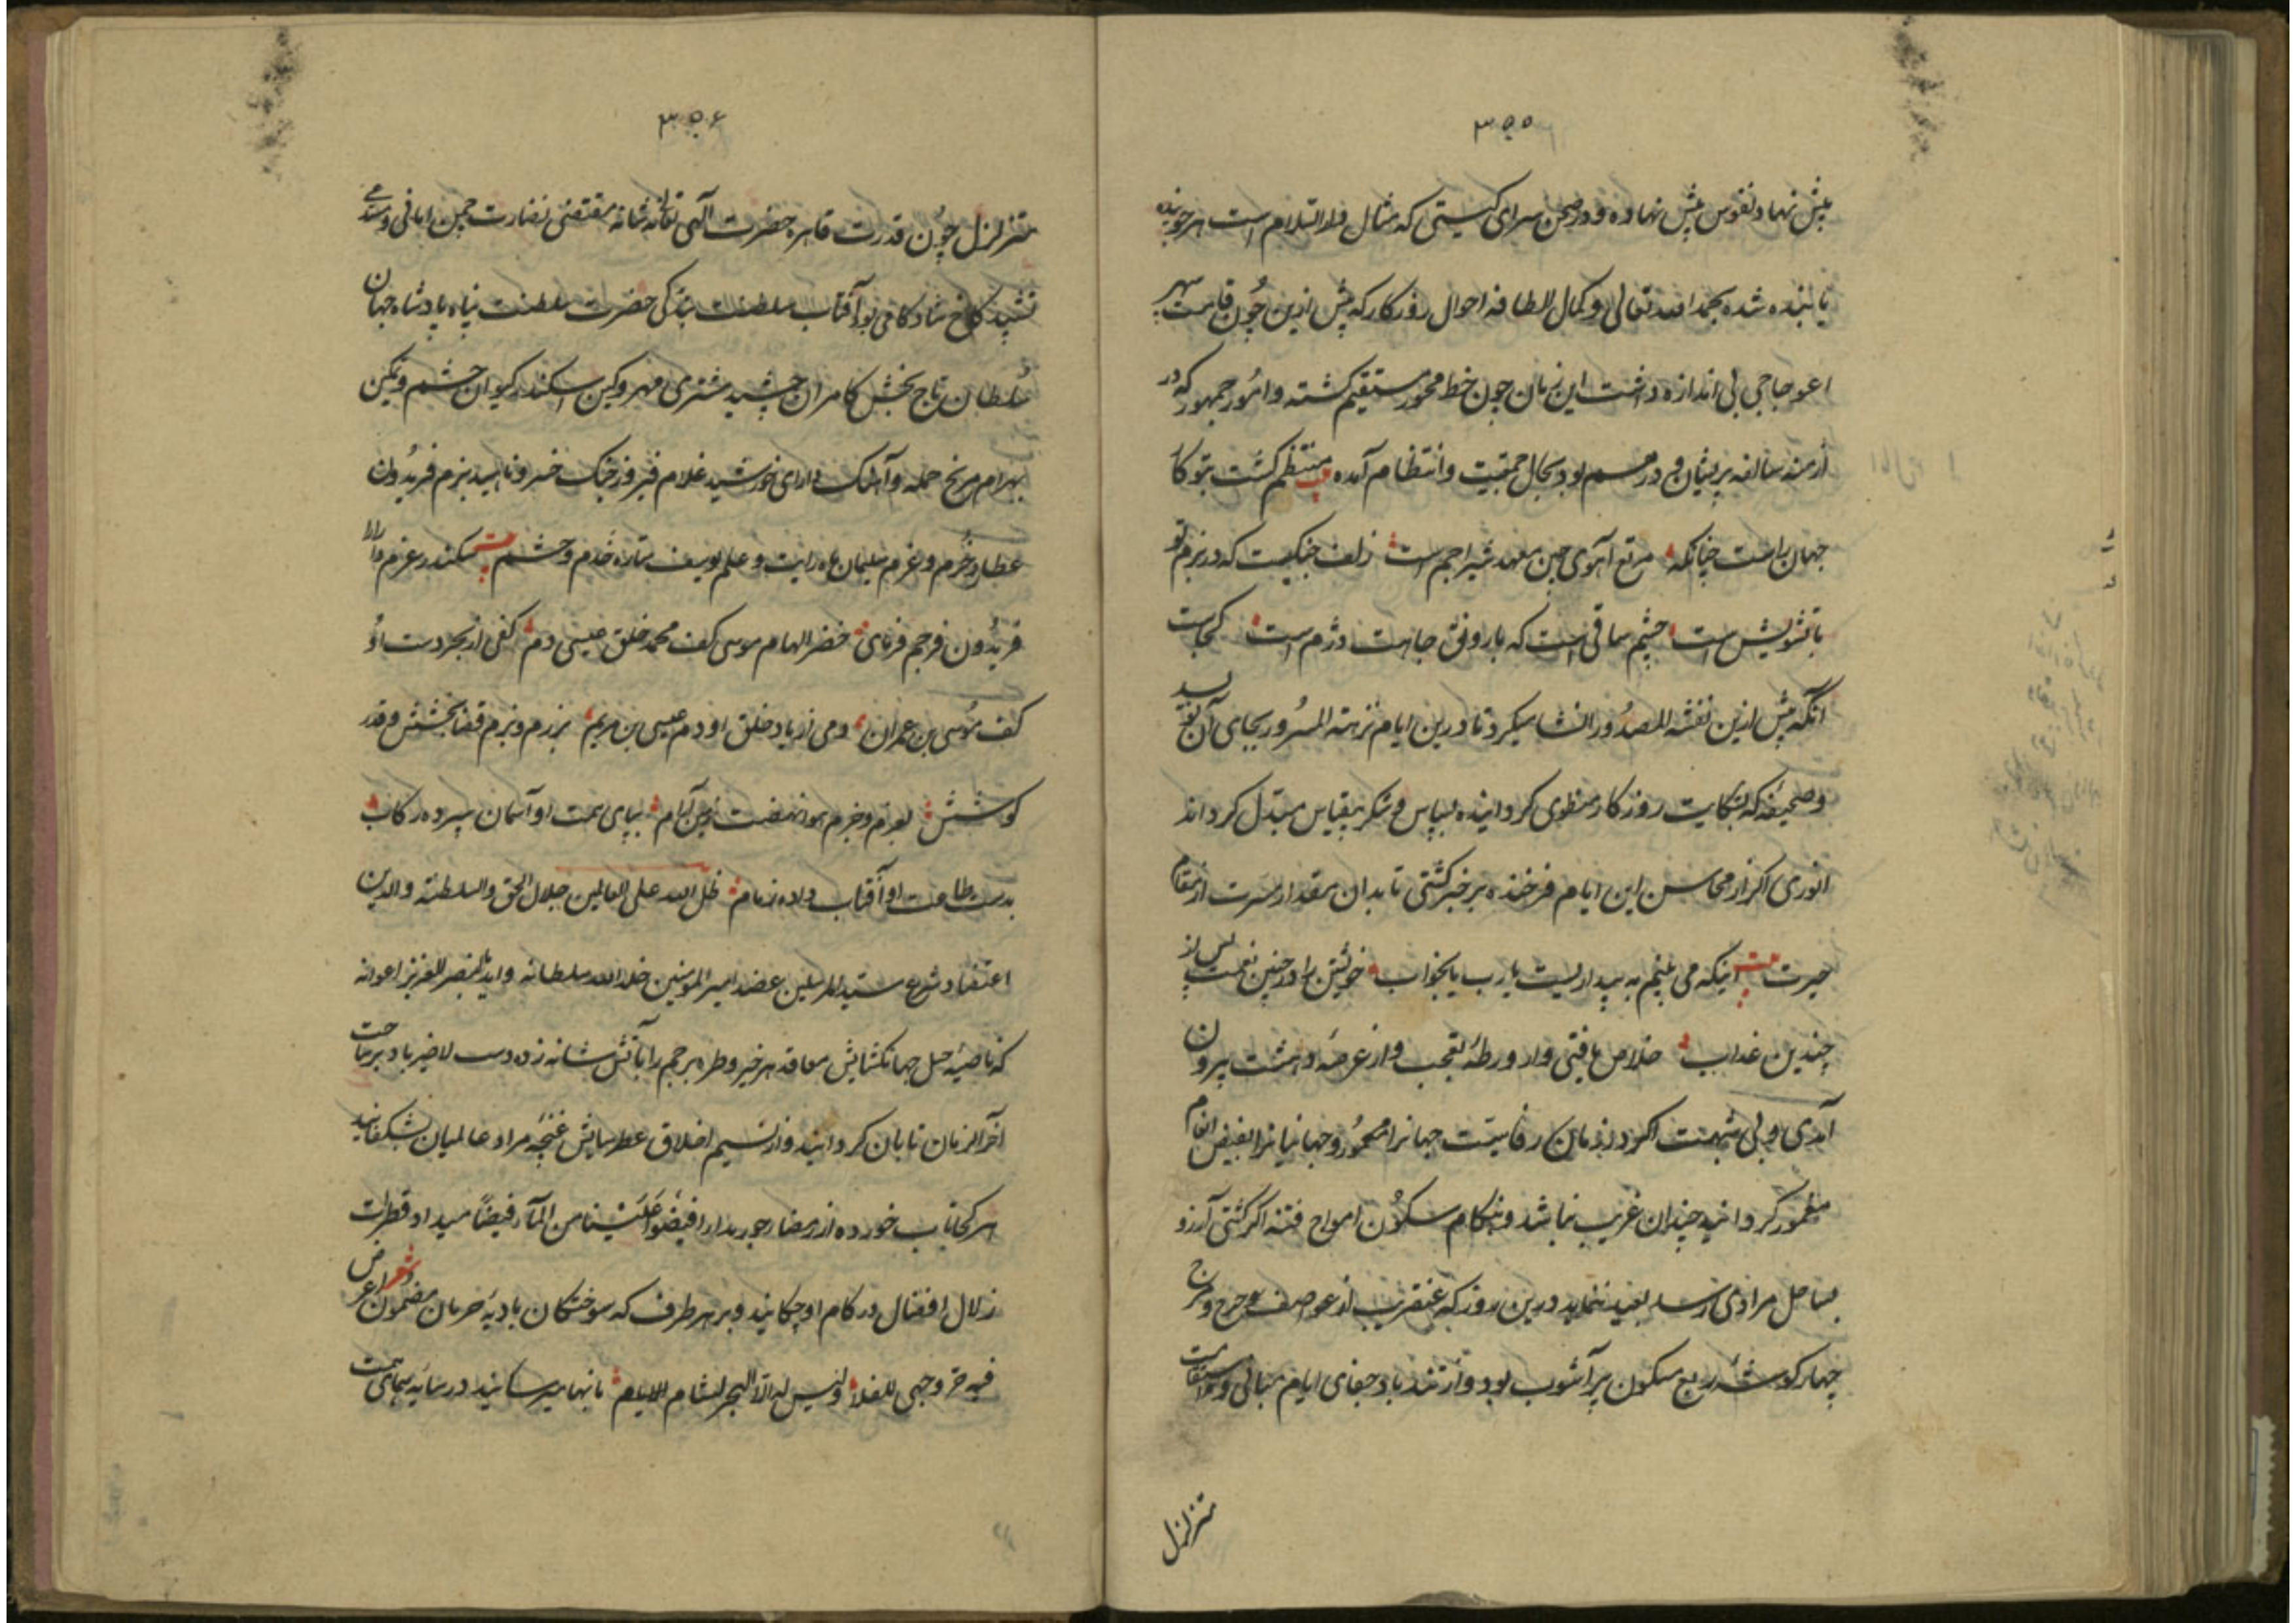 ۳۵۵
پیش نهاد نفوس پیش نهاده و در صحن سرای کیتی که مثال دار السلام است هر جوینده
یابنده شده بحمد الله تعالی و کمال الطافه احوال روزکار که پیش ازین چون قامت سپهر
اعوجاجی بی اندازه داشت این زمان چون خط محور مستقیم کشته و امور جمهور که در
ازمنه سالفه پریشان و درهم بود بحال جمعیت و انتظام آمده بیت منتظم کشت بتو کار
جهان راست چنانکه مرتع آهوی چین معهد شیر اجم است زلف جنکیست که در بزم تو
با تشویش است چشم ساقی است که با رونق جاهت دژم است کجاست
آنکه پیش ازین نفثة المصدور انشا میکرد تا درین ایام نزهة المسرور بجای آن بنویسد
و صحیفه که بشکایت روزکار منطوی کردانیده بسپاس و شکر بیقیاس مبدل کرداند
انوری اکر از محاسن این ایام فرخنده بر خبر کشتی تا بدان مقدار مسرت از مقام
حیرت بیت اینکه می بینم به بیداریست یا رب یا بخواب خویشتن را در چنین نعمت پس از
چندین عذاب خلاص یافتی و از ورطه تعجب و از عرصه دهشت بیرون
آمدی و بی شبهت اکر در زمان رفاهیت جهانرا معمور و جهانیانرا بفیض انعام
مغمور کردانید چندان غریب نباشد و هنکام سکون امواج فتنه اکر کشتی آرزو
بساحل مرادی رسد بعید ننماید درین روز که عنقریب از عواصف هرج و مرج
چهار کوشه ربع مسکون پر آشوب بود و از تندباد جفای ایام مبانی و استقامت
متزلزل
۳۵۶
متزلزل چون قدرت قاهره حضرت آلهی تعالی شانه مقتضی نضارت چمن امانی و مستدعی
تشیید کاخ شادکامی بود آفتاب سلطنت بندکی حضرت سلطنت پناه پادشاه جهان
سلطان تاج بخش کامران جمشید مشتری مهر و کین اسکندر کیوان حشم و تمکین
بهرام مریخ حمله و آهنک دارای خورشید غلام فیروز جنک خسرو ناهید بزم فریدون
عطارد حزم و عزم سلیمان ماه رایت و علم یوسف ستاره خدم و حشم بیت سکندر عزم دارا رای
فریدون فر جم فرمای خضر الهام موسی کف محمد خلق عیسی دم کفی از بحر دست او
کف موسی بن عمران دمی از باد خلق او دم عیسی بن مریم برزم و بزم قضا بخشش و قدر
کوشش بعزم و حزم هوا نهضت زمین آرام بپای همت او آسمان سپرده رکاب
بدست طاعت او آفتاب داده زمام ظل الله علی العالمین جلال الحق و السلطنة و الدین
اعتضاد شرع سید المرسلین عضد امیر المؤمنین خلد الله سلطانه و ایدّ بالنصر العزیز اعوانه
که ناصیه خیل جهانکشایش معاقد هر خیر و طره پرچم رایاتش شانه زده دست لاضیر باد بر ساحت
آخر الزمان تابان کردانید و از نسیم اخلاق عطرسایش غنچه مراد عالمیان بشکفانید
هر کجا تاب خورده از رمضاء جور بدار افیضوا علینا من الماء فیضا میداد قطرات
زلال افضال در کام او چکانید و بر هر طرف که سوختکان بادیه حرمان مضمون شعر اعرض
فیه خر وجهی للفلا ولیس له الا الهجیر لشام الایام بانها میرسانید در سایه همای همت